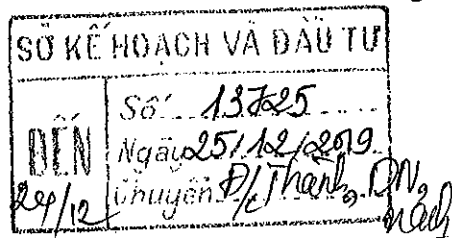 SỞ KẾ HOẠCH VÀ ĐẦU TƯ
ĐẾN
Số: 13725
Ngày 25/12/2019
Chuyển Đ/c Thành, DN,
24/12